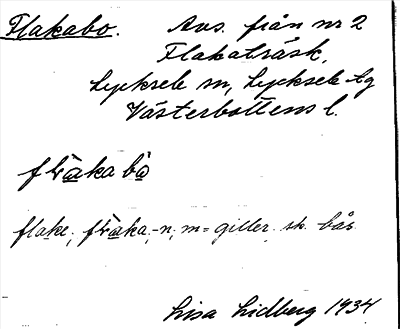 Flakabo. Avs. från nr 2
Flakaträsk,
Lycksele sn, Lycksele lg
Västerbottens l.
flàkabò
flake, flàka, -n, m = giller. sk. bås
Lisa Lidberg 1934